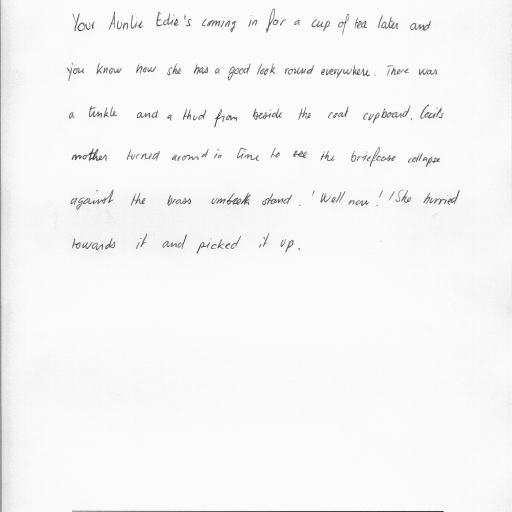 Your Auntie Edie's coming in for a cup of tea later and
you know how she has a good look round everywhere. There was
a tinkle and a thud from beside the coat cupboard. Cecils
mother turned around in time to see the briefcase collapse
against the brass stand. 'Well now!' She hurried
towards it and picked it up.